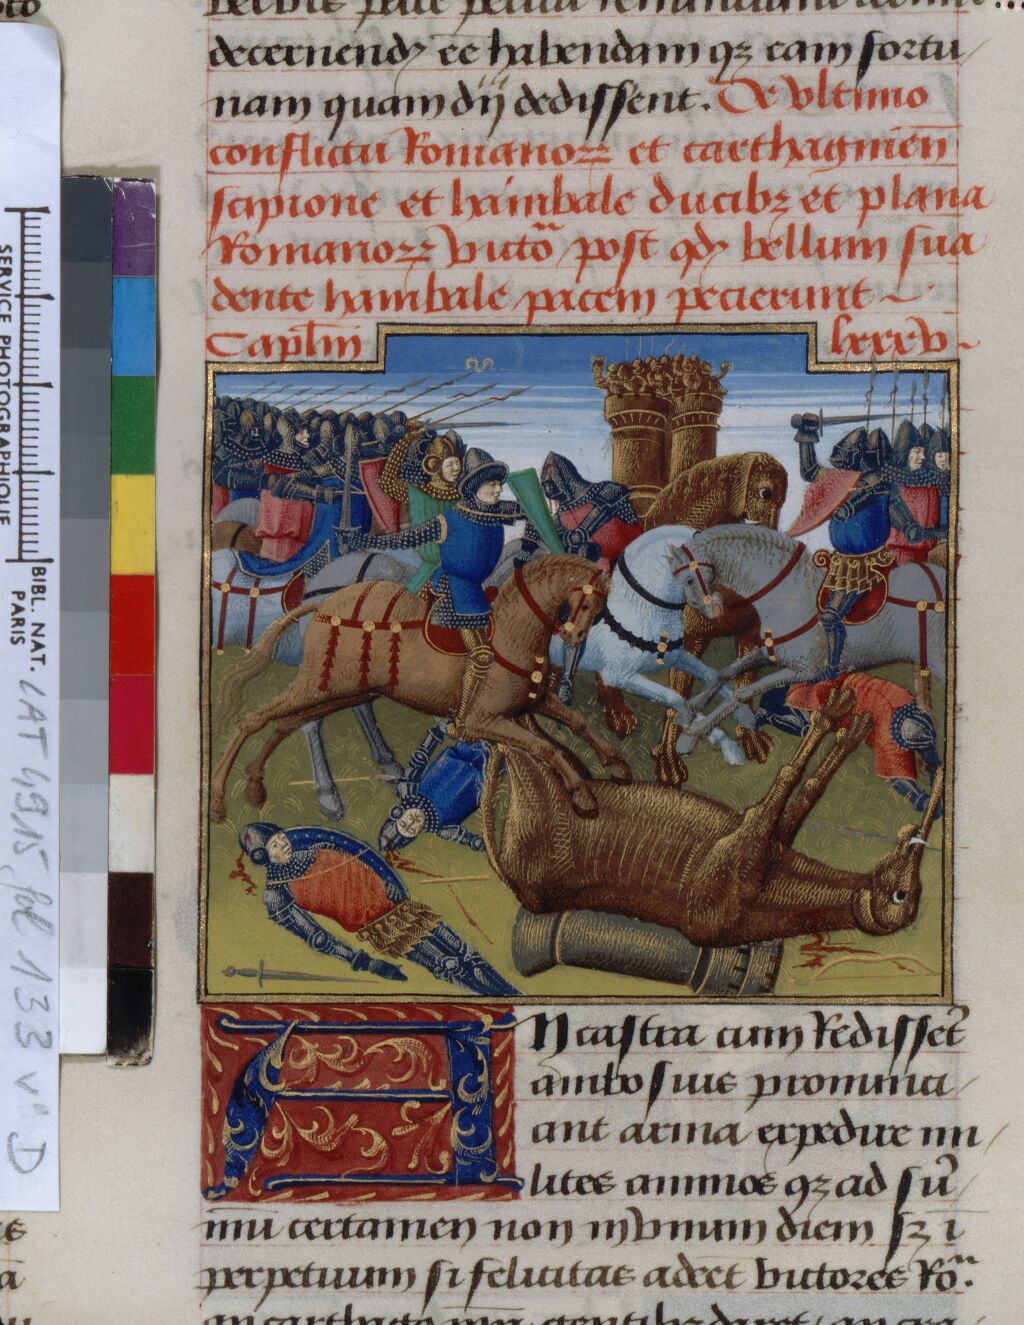 decernendū eē habendam qꝫ eam fortu
nam quam dij dedissent. De vltimo
conflictu Romanoꝝ et carthaginēn
scipione et hānibale ducibꝫ et plana
Romanoꝝ victōa post qđ bellum sua
dente hanibale pacem pecierunt
Capłm lxxxv
In castra cum Redisset
ambo suis pronunci
ant arma expedire mi
lites animos qꝫ ad sū
mū certamen non in vnum diem sꝫ i
perpetuum si felicitas adeet victores Ro.
SERVICE PHOTOGRAPHIQUE
BIBL. NAT.
PARIS
LAT 4915 fol 133 vº D